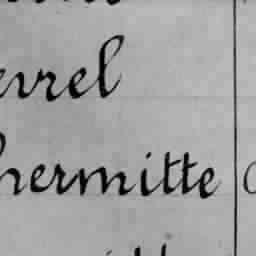 evrel
hermitte